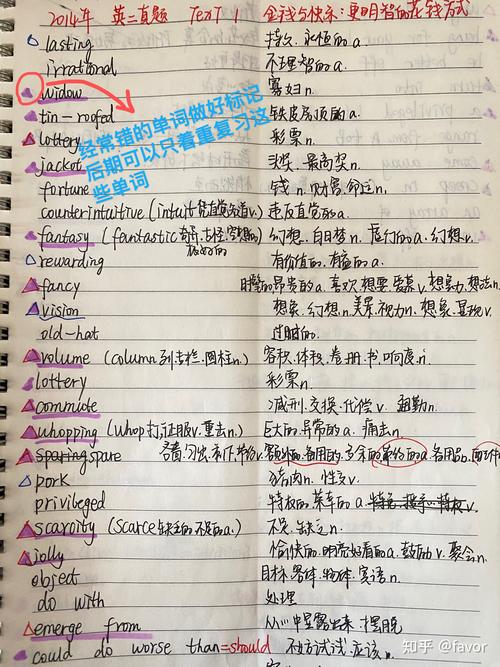 2014年 英二真题 TexT 1 金钱与快乐:更明智的花钱方式
lasting 持久、永恒的a
irrational 不理智的a
widow 寡妇n
tin-roofed 铁皮房顶的a
经常错的单词做好标记
后期可以只着重复习这
些单词
lottery 彩票n
jackpot 头奖、最高奖n
fortune 钱n、财富、命运n
counterintuitive (intuit 凭直觉知道v.) 违反直觉的a
fantasy (fantastic 奇异、古怪、空想的) 幻想、白日梦n、幻想v
rewarding 有价值的、有益的a
fancy 昂贵的a、喜欢、想要、爱慕v、想象力、想法n
vision 想象、幻想n、美景、视力n、想象、显现v
old-hat 过时的
volume (column 列、专栏、圆柱n.) 容积、体积、卷、册、书、响度n
lottery 彩票n
commute 减刑、交换、代偿v 通勤n
whopping (whop 打、征服v、重击n.) 巨大的、异常的a、痛击n
sparing spare 吝啬 额外的、备用的、多余的 a、备用品
pork 猪肉n
privileged 特权的 a
scarcity (scarce 缺乏的、不足的a.) 不足、缺乏n
jolly 愉快的、明亮好看的a、鼓励v、聚会n
object 目标、客体、物体、宾语n
do with 处理
emerge from 从…中显露出来、摆脱
could do worse than=should 不妨试试、应该
知乎 @favor